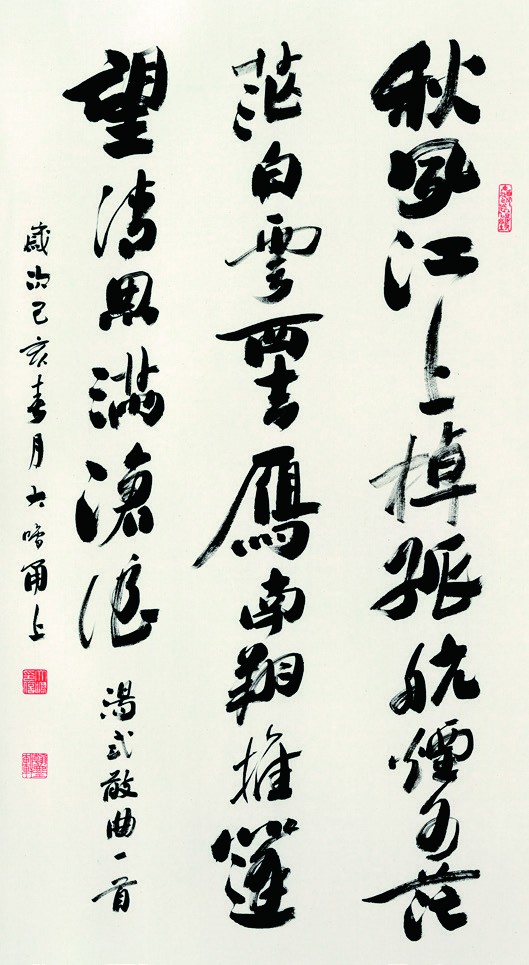 秋風江上棹孤航煙水茫
茫白雲西去鴈南翔推篷
望清思滿滄浪
湯式散曲一首
歲次己亥春月大鳴甬上